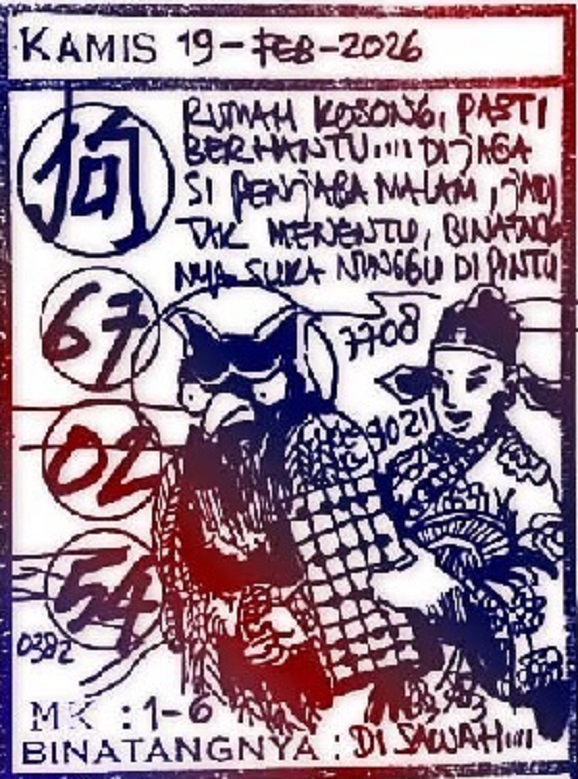 KAMIS 19-FEB-2026
狗
RUMAH KOSONG, PASTI
BERHANTU.... DIJAGA
SI PENJAGA MALAM, JADI
TAK MENENTU, BINATANG
NYA SUKA NUNGGU DI PINTU
67
7708
02
9021
54
0382
MK : 1-6
BINATANGNYA : DI SAWAH....